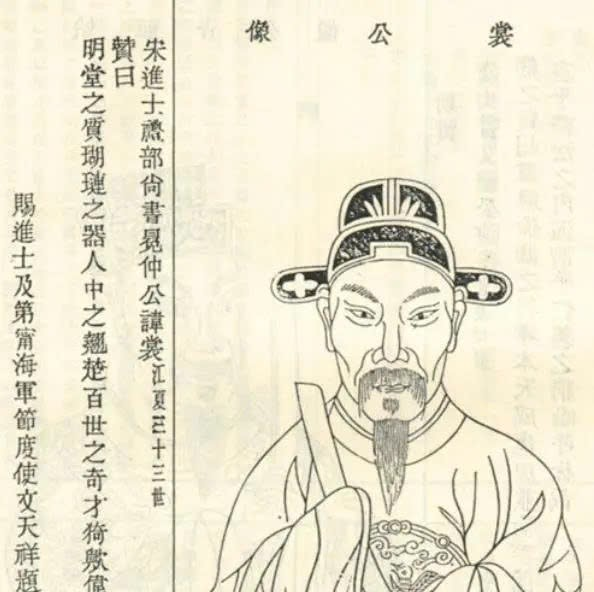 裳公像
宋進士禮部尙書冕仲公諱裳江夏五十三世
贊曰
明堂之質瑚璉之器人中之翹楚百世之奇才猗歟偉
賜進士及第甯海軍節度使文天祥題